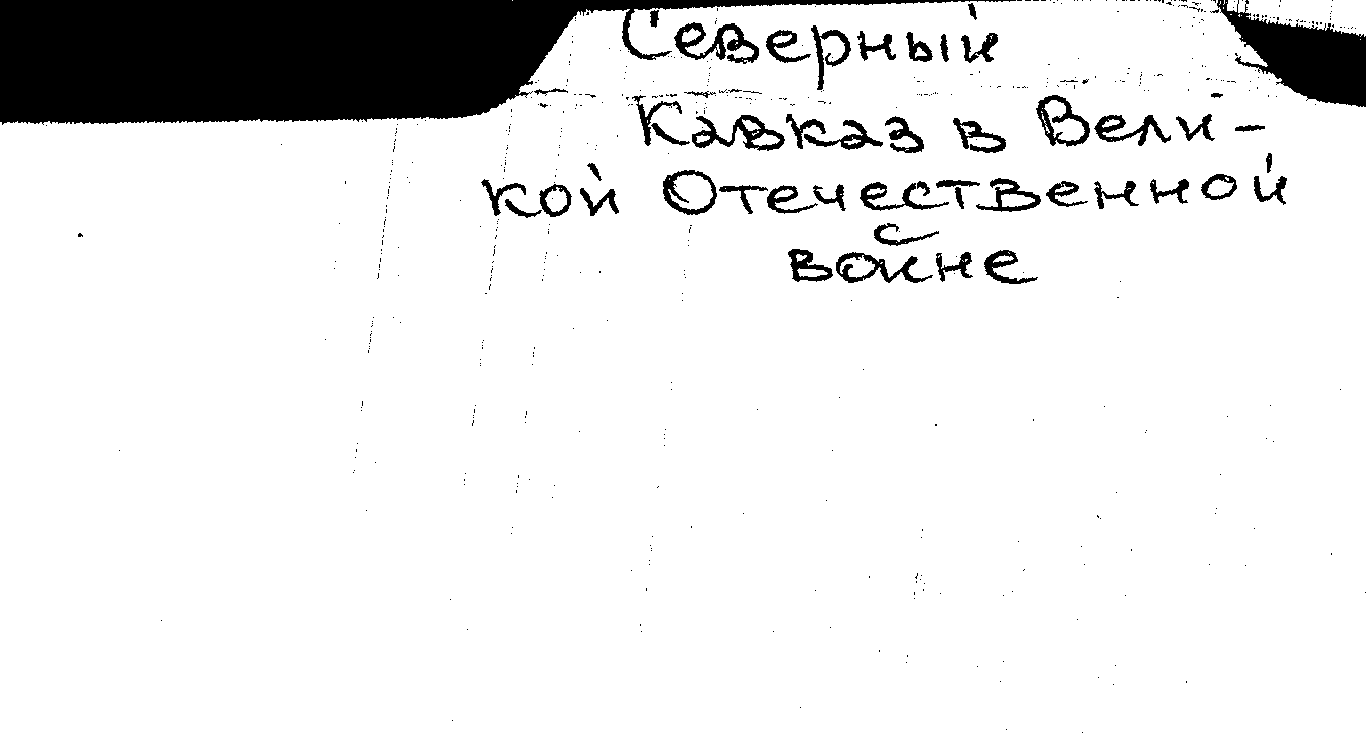 Северный
Кавказ в Вели-
кой Отечественной
войне